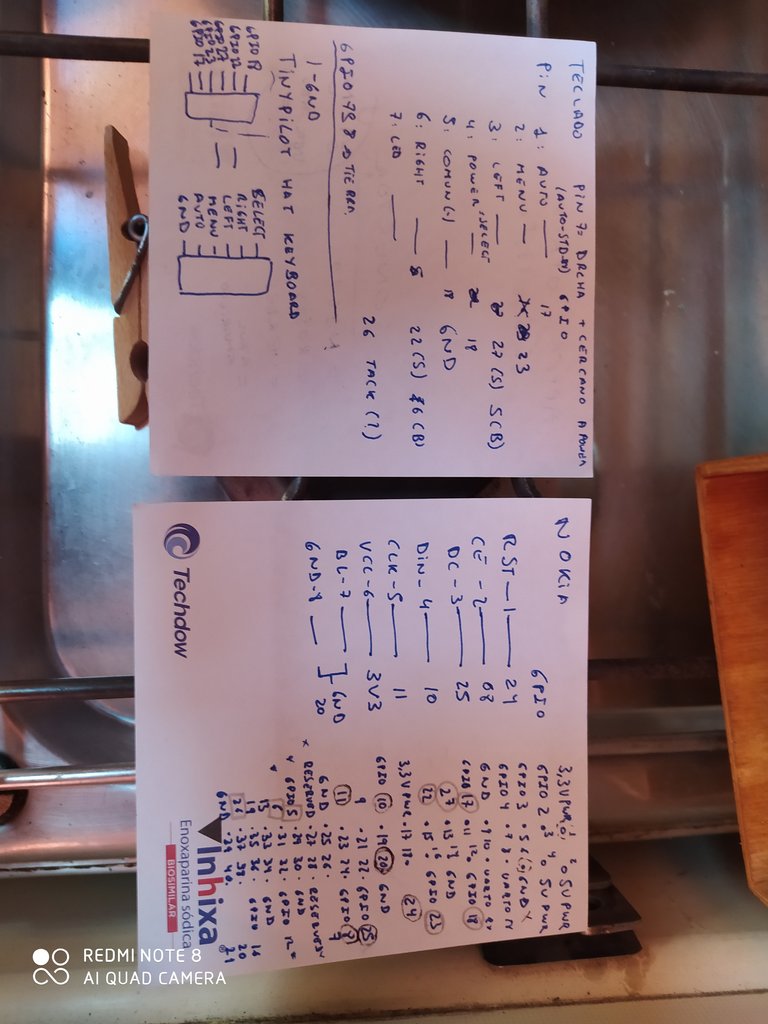 TECLADO PIN 7: DRCHA + CERCANO A POWER
(AUTO-STD-BY)
PIN GPIO
1: AUTO — 17
2: MENU — 23
3: LEFT — 27(S) 5(B)
4: POWER/SELECT — 18
5: COMUN(-) — GND
6: RIGHT — 22(S) 6(B)
7: LED — 26 TACK(?)
GPIO 758 → TIERRA
1-GND
TINYPILOT HAT KEYBOARD
GPIO 18
GPIO 22
GPIO 27
GPIO 23
GPIO 17
SELECT
RIGHT
LEFT
MENU
AUTO
GND
NOKIA GPIO
RST — 1 — 24
CE — 2 — 08
DC — 3 — 25
DIN — 4 — 10
CLK — 5 — 11
VCC — 6 — 3V3
BL — 7 — GND
GND — 8 — 20
3,3V PWR 1 2 5V PWR
GPIO 2 3 4 5V PWR
GPIO 3 5 6 GND
GPIO 4 7 8 UART0 TX
GND 9 10 UART0 RX
GPIO 17 11 12 GPIO 18
27 13 14 GND
22 15 16 GPIO 23
3,3V PWR 17 18 24
GPIO 10 19 20 GND
9 21 22 GPIO 25
11 23 24 GPIO 8
GND 25 26 7
RESERVED 27 28 RESERVED
GPIO 5 29 30 GND
6 31 32 GPIO 12
13 33 34 GND
19 35 36 GPIO 16
26 37 38 20
GND 39 40 21
Techdow
Inhixa
Enoxaparina sódica
BIOSIMILAR
REDMI NOTE 8
AI QUAD CAMERA